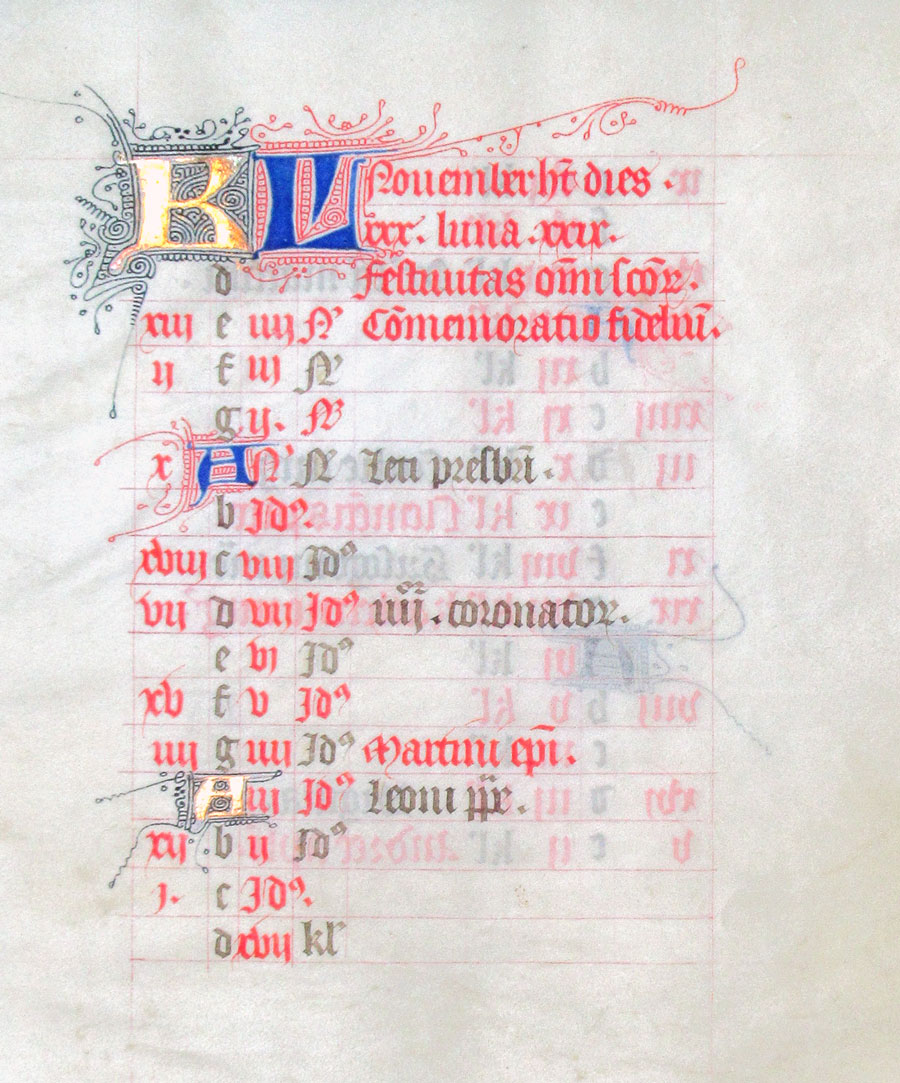 KL Nouember hr̄t dies .
xxx . luna . xxix .
d Festiuitas om̄i scōr .
xiij e iiij N' Cōmemoratio fideliū .
ij f iij N'
g ij . N'
x A N' N' Leti presbrī .
b Jdꝰ .
xviij c viij Jdꝰ
vij d vij Jdꝰ iiij . coronator .
e vj Jdꝰ
xv f v Jdꝰ
iiij g iiij Jdꝰ Martini ep̄i .
A iij Jdꝰ Leoni pp̄e .
xij b ij Jdꝰ
j . c Jdꝰ .
d xviij kl'